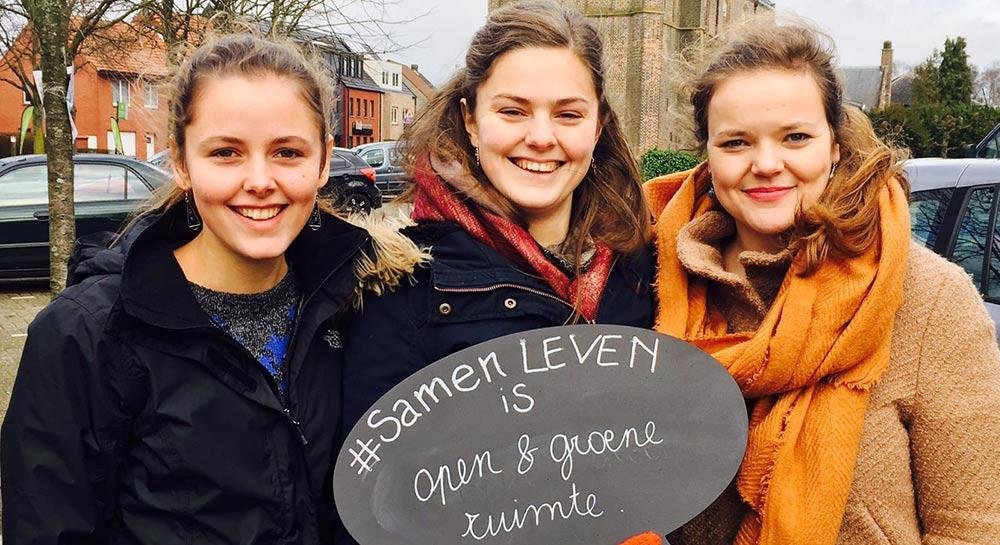 #Samen LEVEN
is
open & groene
ruimte.